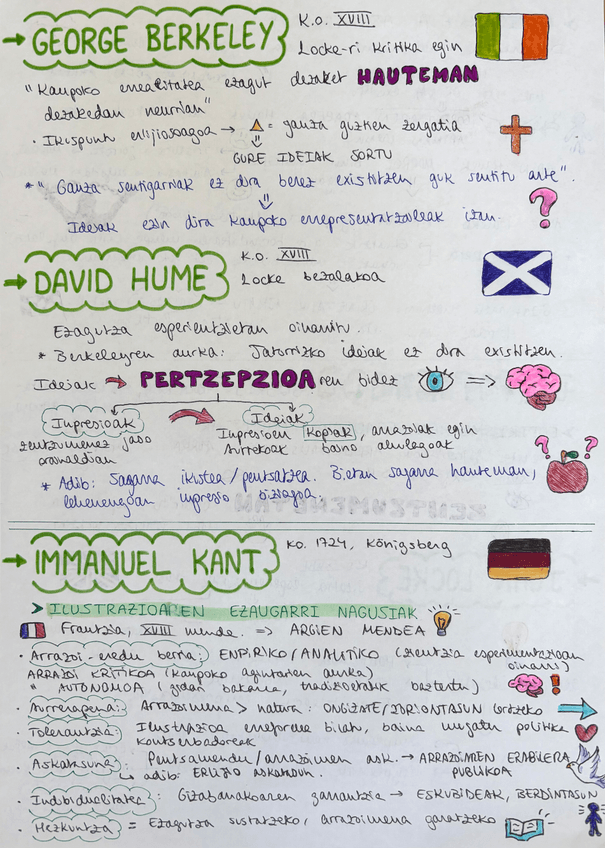 → GEORGE BERKELEY K.O. XVIII
Locke-ri kritika egin
"Kanpoko errealitatea ezagut dezaket HAUTEMAN
dezakedan neurrian"
· Ikuspuntu erlijiosoagoa → △ = gauza guztien zergatia
⇓
GURE IDEIAK SORTU
* "Gauza sentigarriak ez dira berez existitzen guk sentitu arte".
⇓
Ideiak ezin dira kanpoko errepresentatzaileak izan.
→ DAVID HUME K.O. XVIII
Locke bezalakoa
Ezagutza esperientzietan oinarritu.
* Berkeleyren aurka: Jatorrizko ideiak ez dira existitzen.
Ideiak → PERTZEPZIOAren bidez =>
Inpresioak → Ideiak
zentzumenez jaso
orainaldian
Inpresioen kopiak, arrazoiak egin
Aurrekoak baino ahulagoak
* Adib: Sagarra ikustea/pentsatzea. Bietan sagarra hauteman,
lehenengoan inpresio biziagoa.
→ IMMANUEL KANT K.O. 1724, Königsberg
> ILUSTRAZIOAREN EZAUGARRI NAGUSIAK
Frantzia, XVIII mende. => ARGIEN MENDEA
· Arrazoi-eredu berria: ENPIRIKO/ANALITIKO (zientzia esperimentazioan
oinarri)
ARRAZOI KRITIKOA (kanpoko agintarien aurka)
" AUTONOMOA (izan bakarra, tradizioetatik baztertu)
· Aurrerapena: Arrazoimena > natura: ONGIZATE/ZORIONTASUN lortzeko
· Tolerantzia: Ilustrazioa erreforma bilatu, baina mugatu politika
kontserbadoreak
· Askatasuna: Pentsamendu/arrazoimen ask. → ARRAZOIMEN ERABILERA
PUBLIKOA
↳ adib: ERLIJIO ASKATASUN.
· Indibidualitatea: Gizabanakoaren garrantzia → ESKUBIDEAK, BERDINTASUN
· Hezkuntza = Ezagutza sustatzeko, arrazoimena garatzeko